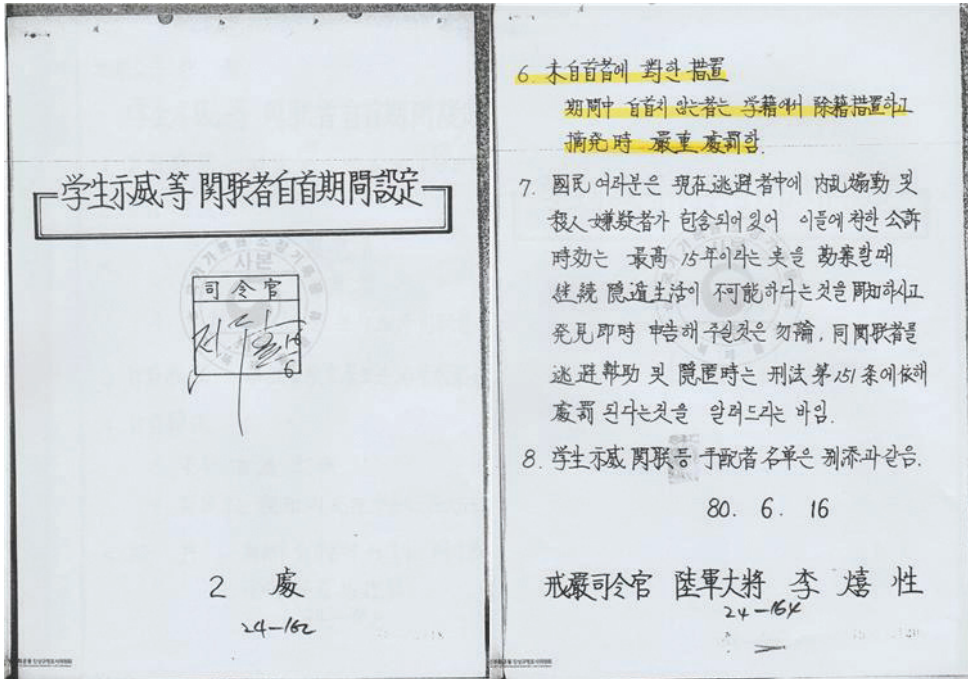 学生示威等 関联者自首期間設定
사본
司令官
2 處
24-162
6. 未自首者에 對한 措置
期間中 自首치 않는者는 学籍에서 除籍措置하고
摘発時 嚴重 處罰함.
7. 國民 여러분은 現在逃避者中에 内乱煽動 및
殺人嫌疑者가 包含되어 있어 이들에 対한 公訴
時効는 最高 15年이라는 것을 勘案할때
継続 隠遁生活이 不可能하다는것을 周知하시고
発見即時 申告해 주실것은 勿論, 同関联者를
逃避幇助 및 隠匿時는 刑法 第151条에依해
處罰 된다는것을 알려드리는 바임.
8. 学生示威 関联등 手配者 名単은 別添과같음.
80. 6. 16
戒嚴司令官 陸軍大將 李熺性
24-164